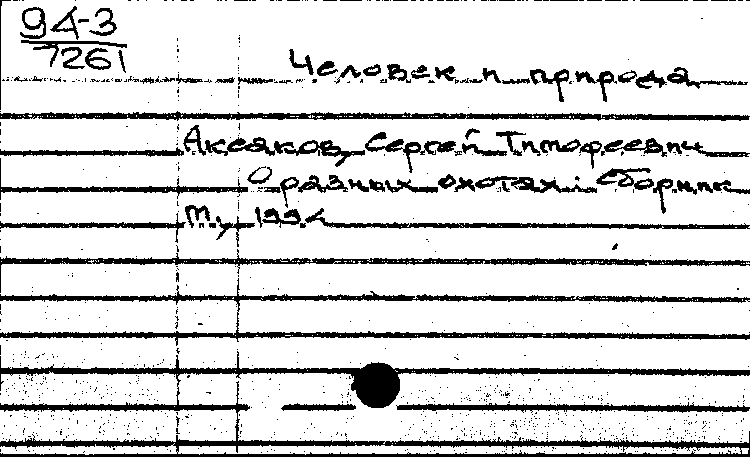 94-3
7261
Человек и природа
Аксаков, Сергей Тимофеевич
О разных охотах: Сборник
М., 1994